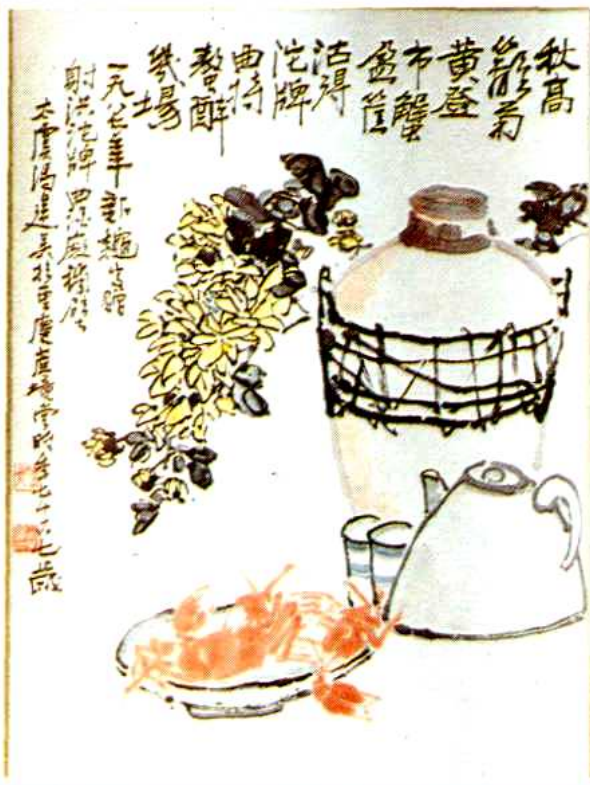 秋高
籬菊
黄登
市蟹
盈筐
沽得
沱牌
曲持
螯醉
幾場
一九八七年
射洪沱牌 廠補壁
太虞馮建吴於重慶 堂時年七十又七歲